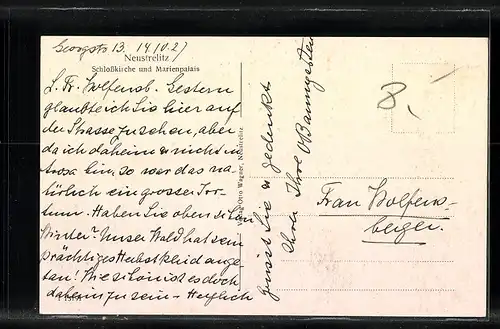 Georgstr 13. 14.10.27
Neustrelitz
Schloßkirche und Marienpalais
L. Fr. Wolfensb. Gestern
glaubte ich Sie hier auf
der Strasse zu sehen, aber
da ich daheim & nicht in
Arosa bin, so war das na-
türlich ein grosser Irr-
tum. Haben Sie oben schon
Winter? Unser Wald hat sein
prächtiges Herbstkleid ange-
tan! Wie schön ist es doch
daheim zu sein – Herzlich
grüsst Sie & gedenkt
Ihrer Ihre O Baumgarten
Verlag Otto Wagner, Neustrelitz
8,-
Frau Wolfens-
berger.